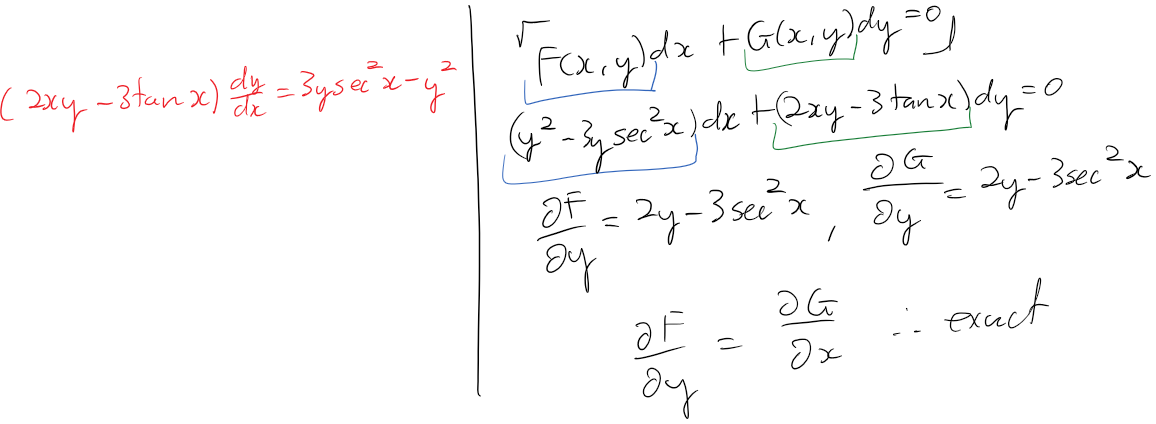 (2xy - 3tanx) dy/dx = 3ysec²x - y²
√ F(x,y)dx + G(x,y)dy = 0
(y² - 3ysec²x)dx + (2xy - 3tanx)dy = 0
∂F/∂y = 2y - 3sec²x , ∂G/∂y = 2y - 3sec²x
∂F/∂y = ∂G/∂x ∴ exact